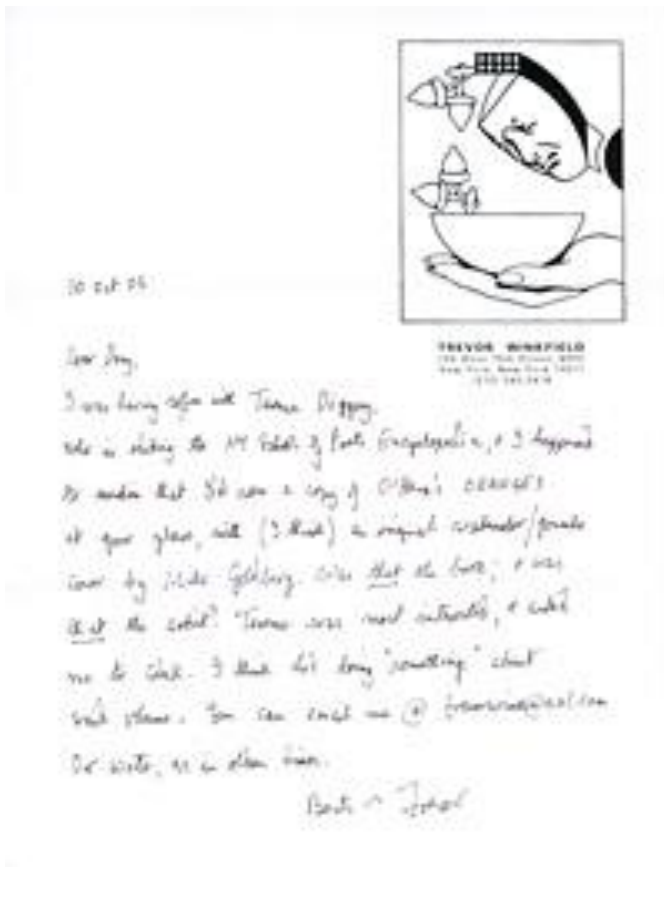 10 Oct 05
TREVOR WINKFIELD
New York, New York
Dear
I was having coffee with Terence Diggory,
who is editing the NY School of Poets Encyclopedia, & I happened
to mention that I'd seen a copy of O'Hara's ORANGES
at your place, with (I think) an original watercolor/gouache
cover by Mike Goldberg. Was that the case; & was
that the artist? Terence was most interested, & asked
me to check. I think he's doing "something" about
such . You can email me @
Or write, as in olden times.
Best Trevor